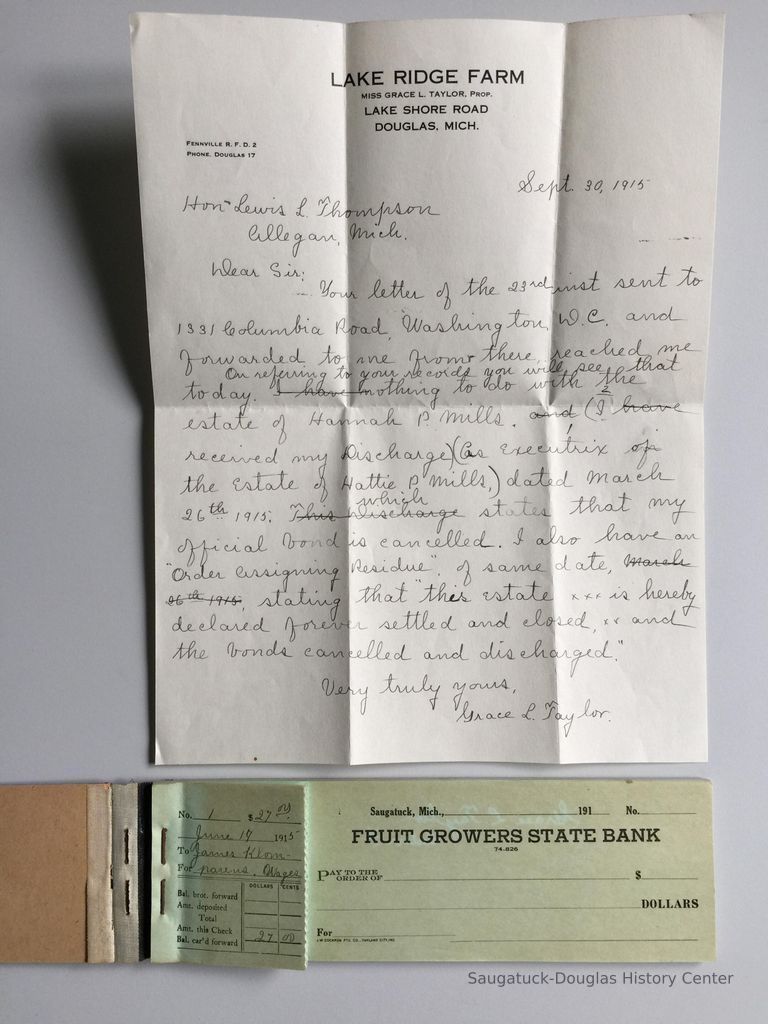 LAKE RIDGE FARM
MISS GRACE L. TAYLOR, PROP.
LAKE SHORE ROAD
DOUGLAS, MICH.
FENNVILLE R. F. D. 2
PHONE, DOUGLAS 17
Sept. 30, 1915
Hon Lewis L. Thompson
Allegan, Mich.
Dear Sir:
Your letter of the 23rd inst sent to
1331 Columbia Road, Washington, D.C. and
forwarded to me from there, reached me
On referring to your records you will see that
today. I have nothing to do with the
estate of Hannah P. Mills. and (I have
received my Discharge) (as Executrix of
the Estate of Hattie P. Mills,) dated March
which
26th 1915. This Discharge states that my
official bond is cancelled. I also have an
"Order Assigning Residue", of same date, March
26th 1915, stating that "this estate xxx is hereby
declared forever settled and closed, xx and
the bonds cancelled and discharged."
Very truly yours,
Grace L. Taylor.
No. 1 $27.00
June 17 1915
To James Klom-
For parens. Wages
DOLLARS CENTS
Bal. brot. forward
Amt. deposited
Total
Amt. this Check
Bal. car'd forward 27 00
Saugatuck, Mich., 191 No.
FRUIT GROWERS STATE BANK
74-826
PAY TO THE
ORDER OF $
DOLLARS
For
Saugatuck-Douglas History Center